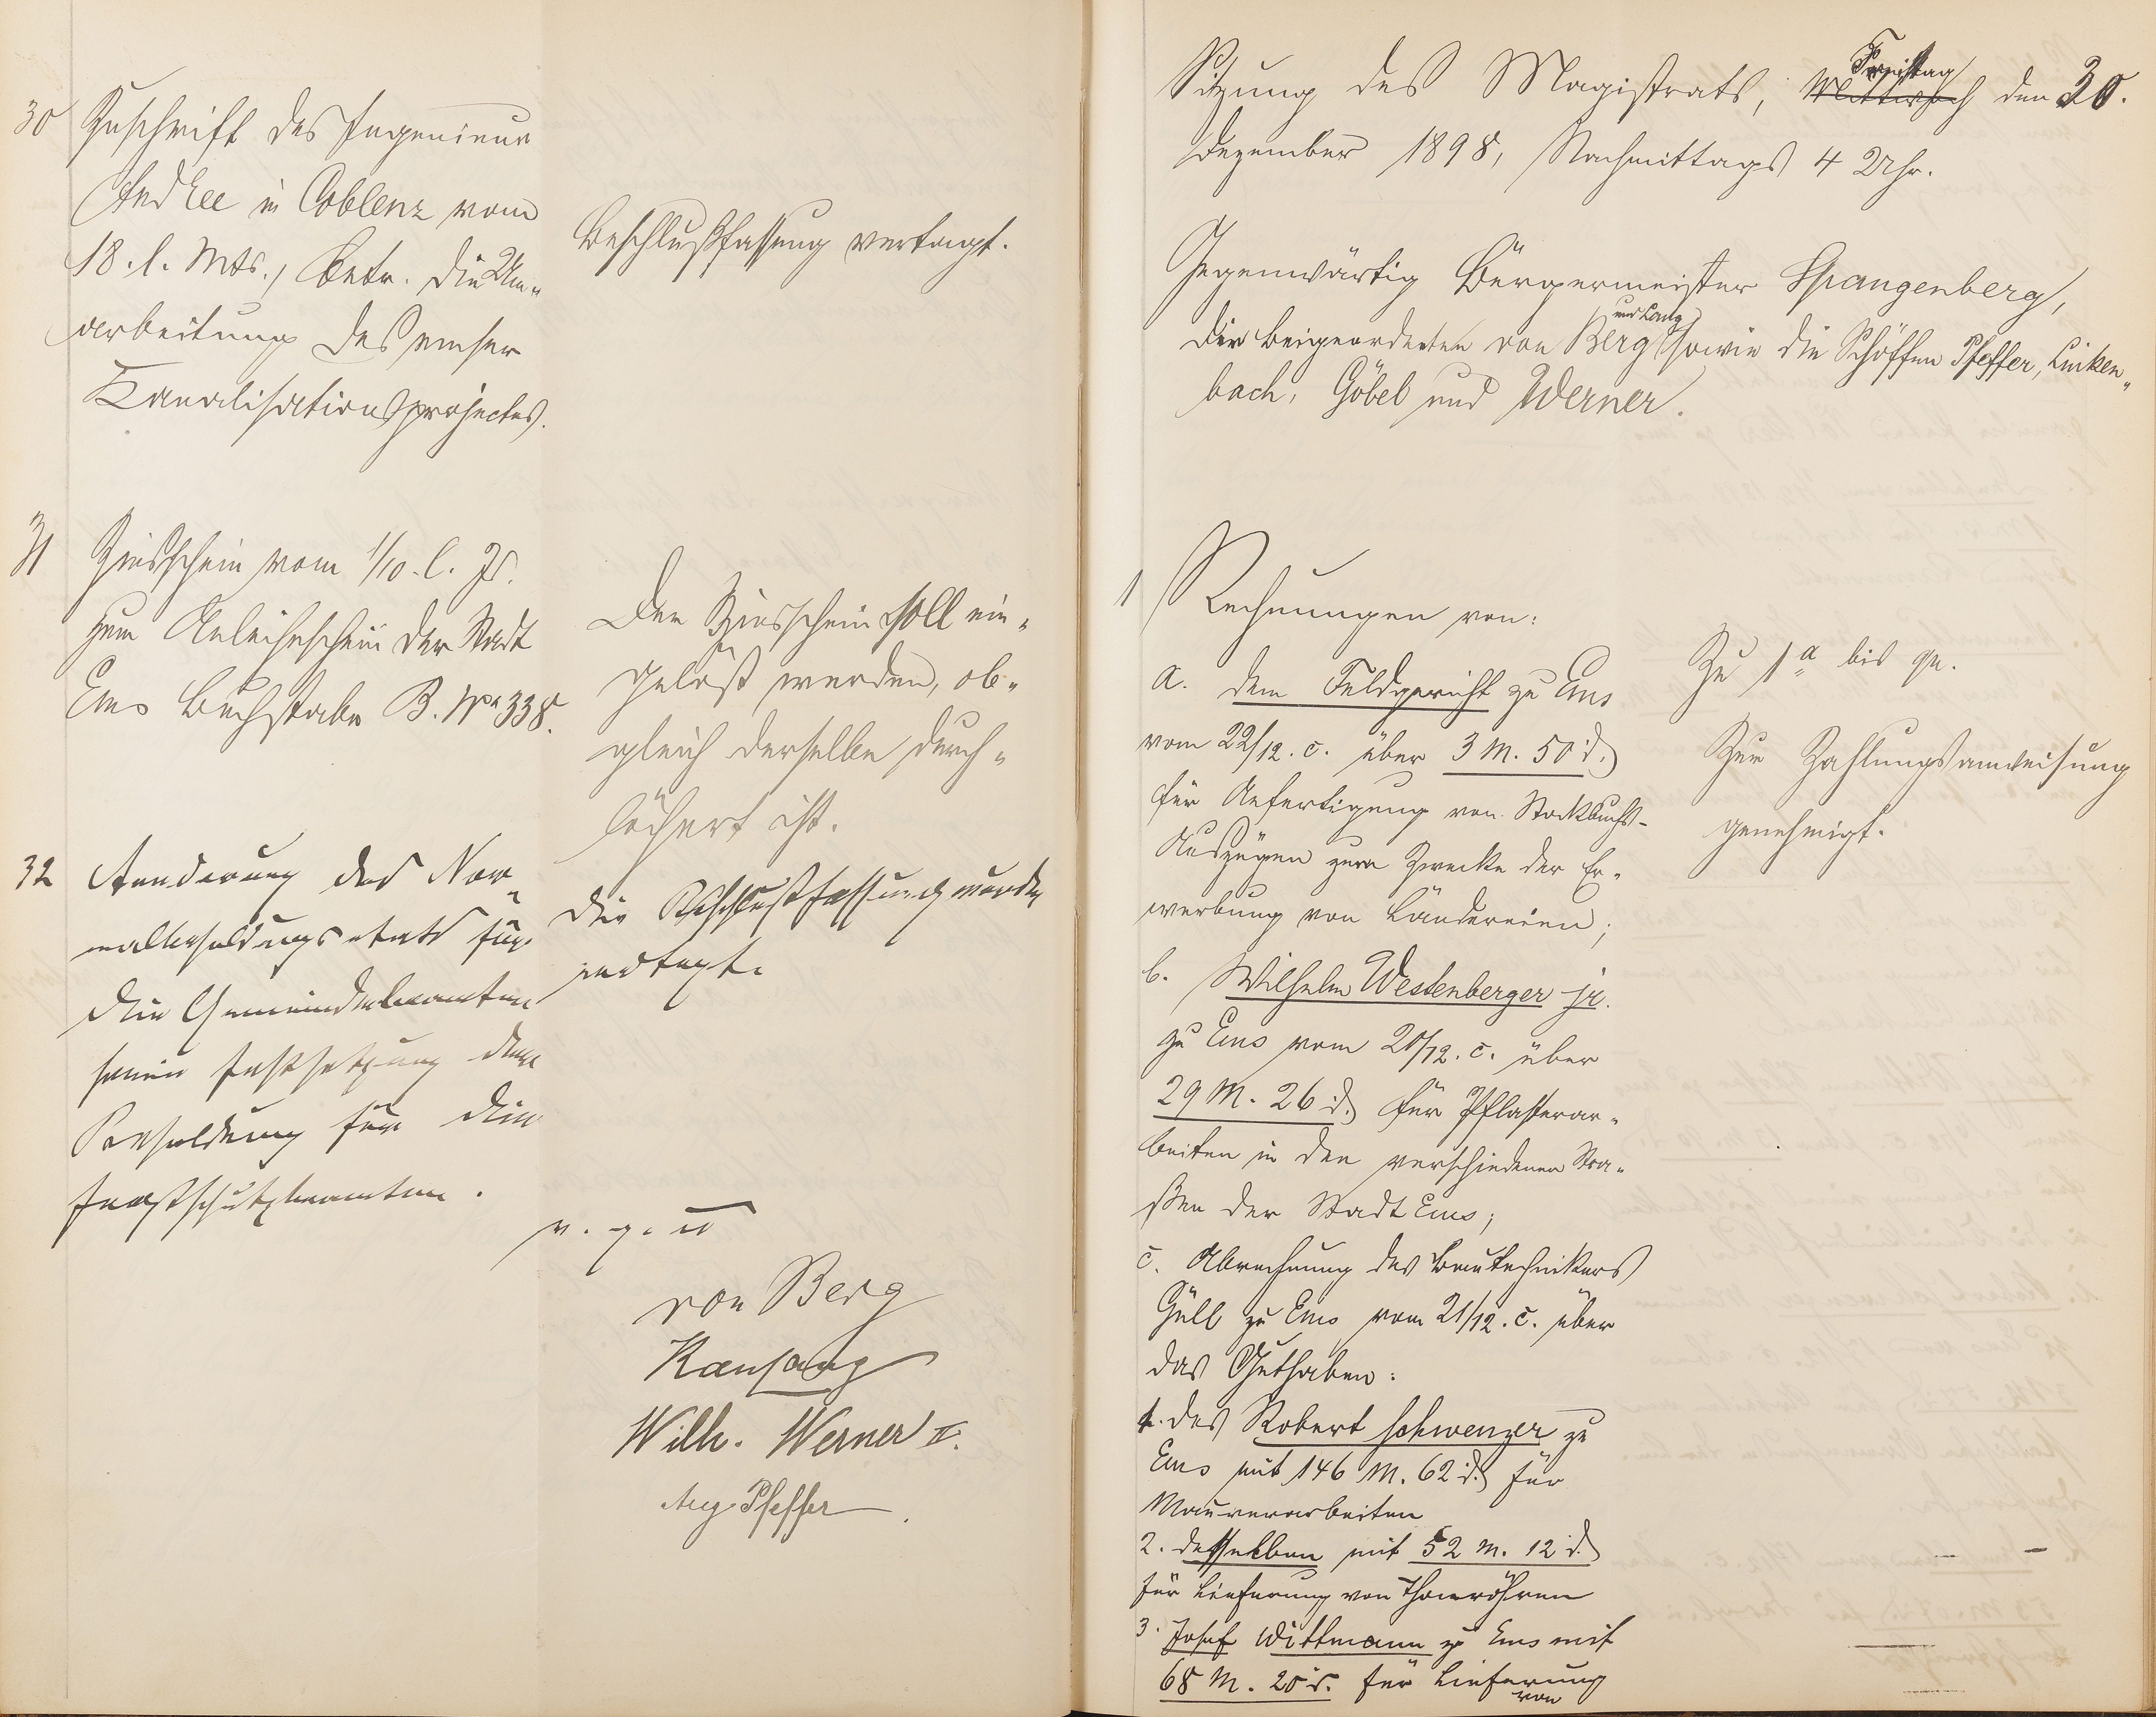 30 Zuschrift des Ingenieur
Andree in Coblenz vom
18. l. Mts., betr. die Um-
arbeitung des emser
Kanalisationsprojectes.
Beschlußfassung vertagt.
31 Zinsschein vom 1/10. l. Js.
zum Anleiheschein der Stadt
Ems Buchstabe B. No 338.
Der Zinsschein soll ein-
gelöst werden, ob-
gleich derselbe durch-
löchert ist.
32 Aenderung des Nor-
malbesoldungsetats für
die Gemeindebeamten
sowie Festsetzung der
Besoldung für die
Forstschutzbeamten.
Die Beschlußfassung wurde
vertagt.
v. g. u
von Berg
Wilh. Werner II.
Aug. Pfeffer
Sitzung des Magistrats, Mittwoch Freitag den 30.
Dezember 1898, Nachmittags 4 Uhr.
Gegenwärtig Bürgermeister Spangenberg,
die Beigeordneten von Berg und Lang sowie die Schöffen Pfeffer, Linken-
bach, Göbel und Werner.
1 Rechnungen von:
a. dem Feldgericht zu Ems
vom 22/12. c. über 3 M. 50 d.
für Anfertigung von Stockbuchs-
Auszügen zum Zwecke der Er-
werbung von Ländereien;
b. Wilhelm Westenberger jr.
zu Ems vom 20/12. c. über
29 M. 26 d. für Pflasterar-
beiten in den verschiedenen Stra-
ßen der Stadt Ems;
c. Abrechnung des Bautechnikers
Güll zu Ems vom 21/12. c. über
das Guthaben:
1. des Robert Schwenzer zu
Ems mit 146 M. 62 d. für
Maurerarbeiten
2. desselben mit 52 M. 12 d.
für Lieferung von Thonröhren
3. Josef Wittmann zu Ems mit
68 M. 20 d. für Lieferung
von
Zu 1a bis
Zur Zahlungsanweisung
genehmigt.